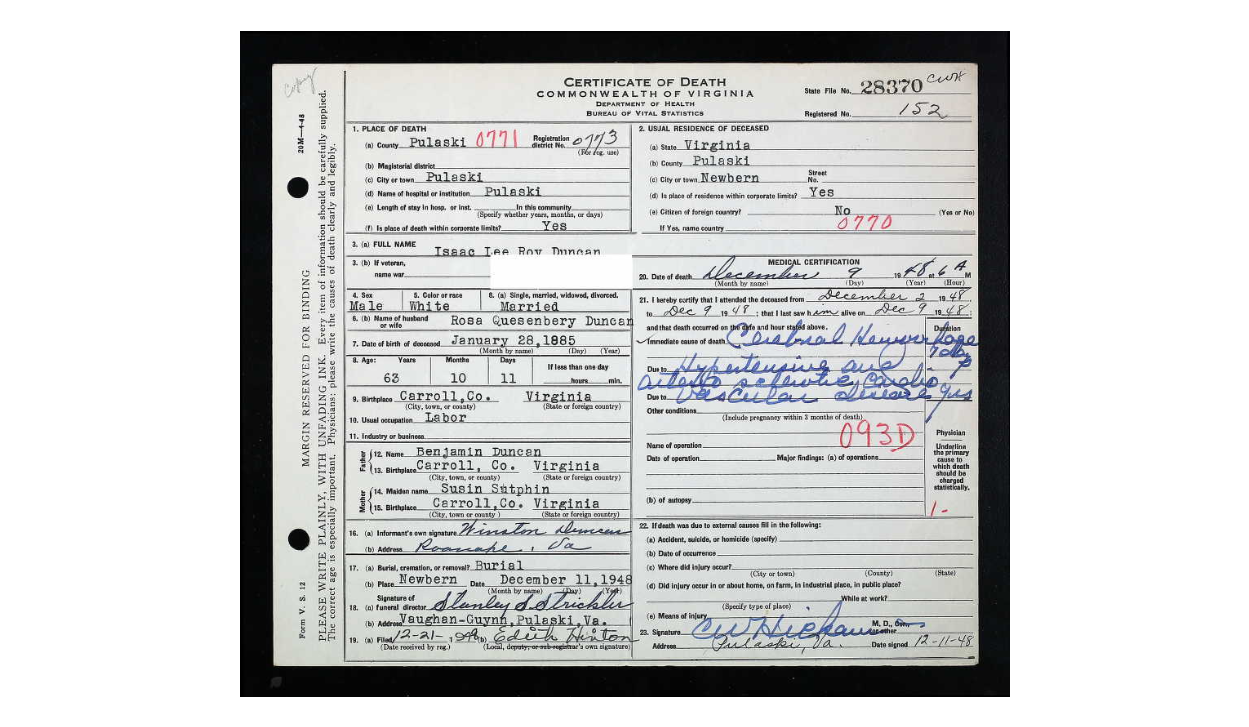 Copy
CERTIFICATE OF DEATH
COMMONWEALTH OF VIRGINIA
DEPARTMENT OF HEALTH
BUREAU OF VITAL STATISTICS
State File No. 28370 CWH
Registered No. 152
20M—4-48
MARGIN RESERVED FOR BINDING
PLEASE WRITE PLAINLY, WITH UNFADING INK. Every item of information should be carefully supplied.
The correct age is especially important. Physicians: please write the causes of death clearly and legibly.
Form V. S. 12
1. PLACE OF DEATH
(a) County Pulaski 0771 Registration district No. 0773
(For reg. use)
(b) Magisterial district
(c) City or town Pulaski
(d) Name of hospital or institution Pulaski
(e) Length of stay in hosp. or inst. In this community
(Specify whether years, months, or days)
(f) Is place of death within corporate limits? Yes
2. USUAL RESIDENCE OF DECEASED
(a) State Virginia
(b) County Pulaski
(c) City or town Newbern Street No.
(d) Is place of residence within corporate limits? Yes
(e) Citizen of foreign country? No (Yes or No)
If Yes, name country 0770
3. (a) FULL NAME Isaac Lee Roy Duncan
3. (b) If veteran,
name war
4. Sex Male
5. Color or race White
6. (a) Single, married, widowed, divorced. Married
6. (b) Name of husband or wife Rosa Quesenbery Duncan
7. Date of birth of deceased January 28, 1885
(Month by name) (Day) (Year)
8. Age: Years Months Days If less than one day
63 10 11 hours min.
9. Birthplace Carroll, Co. Virginia
(City, town, or county) (State or foreign country)
10. Usual occupation Labor
11. Industry or business
Father
12. Name Benjamin Duncan
13. Birthplace Carroll, Co. Virginia
(City, town, or county) (State or foreign country)
Mother
14. Maiden name Susin Sutphin
15. Birthplace Carroll, Co. Virginia
(City, town or county) (State or foreign country)
16. (a) Informant's own signature Winston Duncan
(b) Address Roanoke, Va
17. (a) Burial, cremation, or removal? Burial
(b) Place Newbern Date December 11, 1948
(Month by name) (Day) (Year)
18. Signature of
(a) funeral director Stanley S. Strickler
(b) Address Vaughan-Guynn, Pulaski, Va.
19. (a) Filed 12-21-, 1948 (b) Edith Hinton
(Date received by reg.) (Local, deputy, or sub-registrar's own signature)
MEDICAL CERTIFICATION
20. Date of death December 9 1948 at 6 A M
(Month by name) (Day) (Year) (Hour)
21. I hereby certify that I attended the deceased from December 2 1948
to Dec 9 1948; that I last saw him alive on Dec 9 1948;
and that death occurred on the date and hour stated above. Duration
Immediate cause of death Cerebral Hemorrhage 7 days
Due to Hypertensive and ?
arterio sclerotic Cardio
Due to Vascular disease yrs
Other conditions
(Include pregnancy within 3 months of death)
093D
Name of operation
Date of operation Major findings: (a) of operations
(b) of autopsy
Physician
Underline
the primary
cause to
which death
should be
charged
statistically.
1-
22. If death was due to external causes fill in the following:
(a) Accident, suicide, or homicide (specify)
(b) Date of occurrence
(c) Where did injury occur?
(City or town) (County) (State)
(d) Did injury occur in or about home, on farm, in industrial place, in public place?
While at work?
(Specify type of place)
(e) Means of injury
23. Signature M. D., or other
Address Pulaski, Va. Date signed 12-11-48